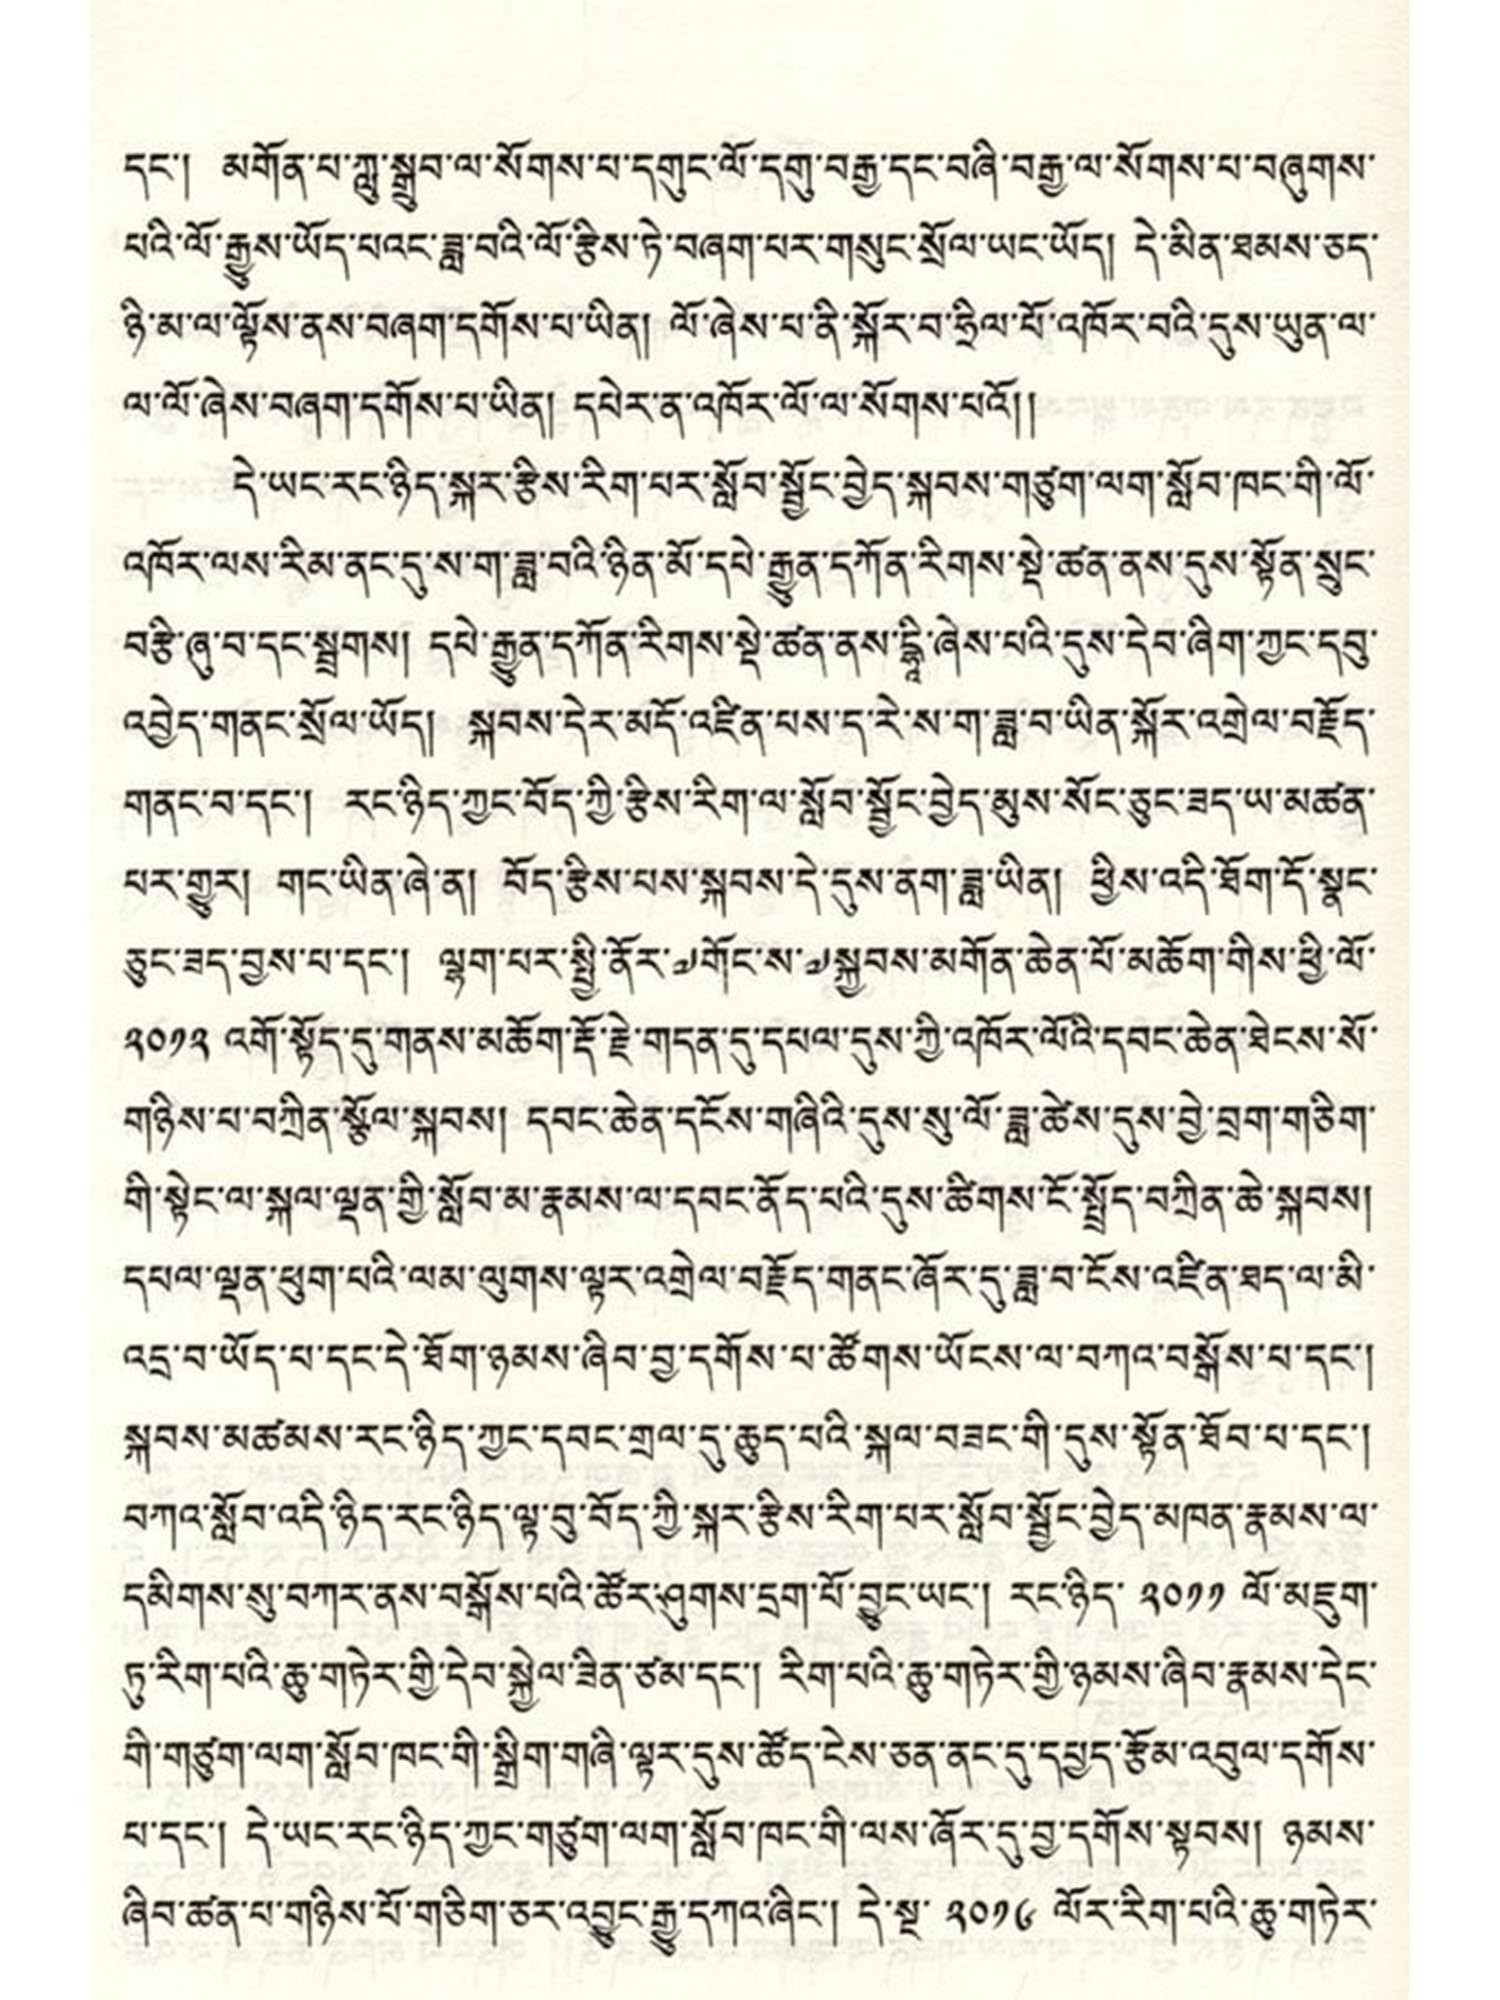 དང་། མགོན་པ་ཀླུ་སྒྲུབ་ལ་སོགས་པ་དགུང་ལོ་དགུ་བརྒྱ་དང་བཞི་བརྒྱ་ལ་སོགས་པ་བཞུགས་
པའི་ལོ་རྒྱུས་ཡོད་པའང་ཟླ་བའི་ལོ་རྩིས་ཏེ་བཞག་པར་གསུང་སྲོལ་ཡང་ཡོད། དེ་མིན་ཐམས་ཅད་
ཉི་མ་ལ་ལྟོས་ནས་བཞག་དགོས་པ་ཡིན། ལོ་ཞེས་པ་ནི་སྐོར་བ་ཧྲིལ་པོ་འཁོར་བའི་དུས་ཡུན་ལ་
ལ་ལོ་ཞེས་བཞག་དགོས་པ་ཡིན། དཔེར་ན་འཁོར་ལོ་ལ་སོགས་པའོ།།
དེ་ཡང་རང་ཉིད་སྐར་རྩིས་རིག་པར་སློབ་སྦྱོང་བྱེད་སྐབས་གཙུག་ལག་སློབ་ཁང་གི་ལོ་
འཁོར་ལས་རིམ་ནང་དུ་ས་ག་ཟླ་བའི་ཉིན་མོ་དཔེ་རྒྱུན་དཀོན་རིགས་སྡེ་ཚན་ནས་དུས་སྟོན་སྲུང་
བརྩི་ཞུ་བ་དང་སྦྲགས། དཔེ་རྒྱུན་དཀོན་རིགས་སྡེ་ཚན་ནས་དྷཱིཿ་ཞེས་པའི་དུས་དེབ་ཞིག་ཀྱང་དབུ་
འབྱེད་གནང་སྲོལ་ཡོད། སྐབས་དེར་མདོ་འཛིན་པས་ད་རེ་ས་ག་ཟླ་བ་ཡིན་སྐོར་འགྲེལ་བརྗོད་
གནང་བ་དང་། རང་ཉིད་ཀྱང་བོད་ཀྱི་རྩིས་རིག་ལ་སློབ་སྦྱོང་བྱེད་མུས་སོང་ཅུང་ཟད་ཡ་མཚན་
པར་གྱུར། གང་ཡིན་ཞེ་ན། བོད་རྩིས་པས་སྐབས་དེ་དུས་ནག་ཟླ་ཡིན། ཕྱིས་འདི་ཐོག་དོ་སྣང་
ཅུང་ཟད་བྱས་པ་དང་། ལྷག་པར་སྤྱི་ནོར་༧གོང་ས་༧སྐྱབས་མགོན་ཆེན་པོ་མཆོག་གིས་ཕྱི་ལོ་
༢༠༡༢ འགོ་སྟོད་དུ་གནས་མཆོག་རྡོ་རྗེ་གདན་དུ་དཔལ་དུས་ཀྱི་འཁོར་ལོའི་དབང་ཆེན་ཐེངས་སོ་
གཉིས་པ་བཀྲིན་སྩོལ་སྐབས། དབང་ཆེན་དངོས་གཞིའི་དུས་སུ་ལོ་ཟླ་ཚེས་དུས་བྱེ་བྲག་གཅིག་
གི་སྟེང་ལ་སྐལ་ལྡན་གྱི་སློབ་མ་རྣམས་ལ་དབང་ནོད་པའི་དུས་ཚིགས་ངོ་སྤྲོད་བཀྲིན་ཆེ་སྐབས།
དཔལ་ལྡན་ཕུག་པའི་ལམ་ལུགས་ལྟར་འགྲེལ་བརྗོད་གནང་ཞོར་དུ་ཟླ་བ་ངོས་འཛིན་ཐད་ལ་མི་
འདྲ་བ་ཡོད་པ་དང་དེ་ཐོག་ཉམས་ཞིབ་བྱ་དགོས་པ་ཚོགས་ཡོངས་ལ་བཀའ་བསྒོས་པ་དང་།
སྐབས་མཚམས་རང་ཉིད་ཀྱང་དབང་གྲལ་དུ་ཆུད་པའི་སྐལ་བཟང་གི་དུས་སྟོན་ཐོབ་པ་དང་།
བཀའ་སློབ་འདི་ཉིད་རང་ཉིད་ལྟ་བུ་བོད་ཀྱི་སྐར་རྩིས་རིག་པར་སློབ་སྦྱོང་བྱེད་མཁན་རྣམས་ལ་
དམིགས་སུ་བཀར་ནས་བསྒོས་པའི་ཚོར་ཤུགས་དྲག་པོ་བྱུང་ཡང་། རང་ཉིད་ ༢༠༡༡ ལོ་མཇུག་
ཏུ་རིག་པའི་ཆུ་གཏེར་གྱི་དེབ་སྐྱེལ་ཟིན་ཙམ་དང་། རིག་པའི་ཆུ་གཏེར་གྱི་ཉམས་ཞིབ་རྣམས་དེང་
གི་གཙུག་ལག་སློབ་ཁང་གི་སྒྲིག་གཞི་ལྟར་དུས་ཚོད་ངེས་ཅན་ནང་དུ་དཔྱད་རྩོམ་འབུལ་དགོས་
པ་དང་། དེ་ཡང་རང་ཉིད་ཀྱང་གཙུག་ལག་སློབ་ཁང་གི་ལས་ཞོར་དུ་བྱ་དགོས་སྟབས། ཉམས་
ཞིབ་ཚན་པ་གཉིས་པོ་གཅིག་ཅར་འབྱུང་རྒྱུ་དཀའ་ཞིང་། དེ་སྔ་ ༢༠༡༦ ལོར་རིག་པའི་ཆུ་གཏེར་